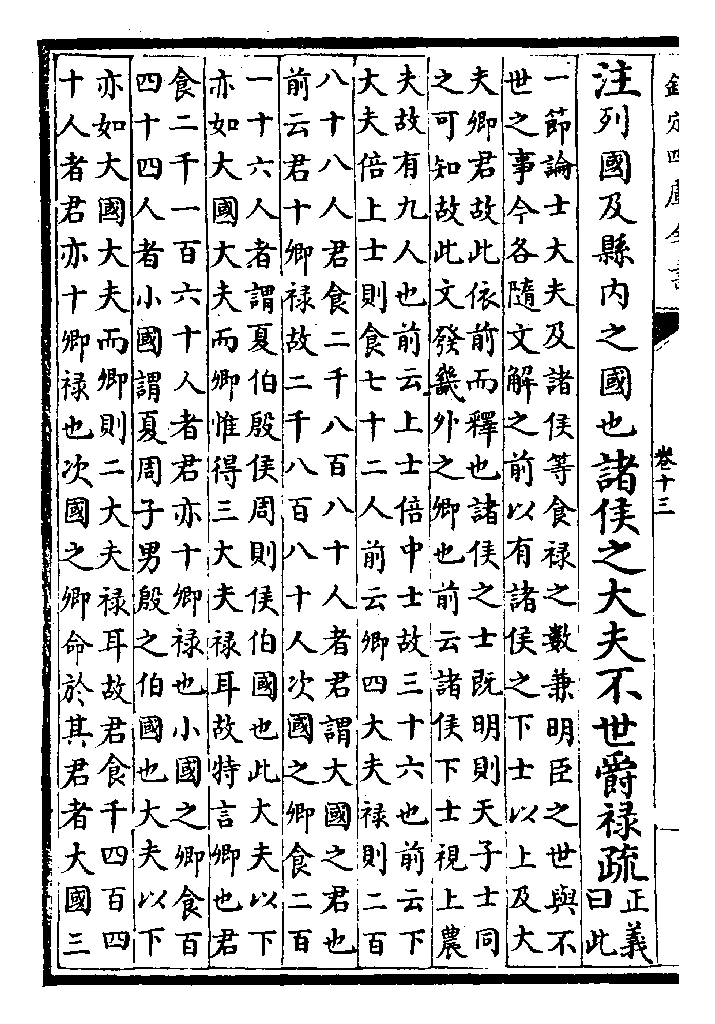 欽定四庫全書
卷十三
注列國及縣內之國也諸侯之大夫不世爵禄疏正義
曰此
一節論士大夫及諸侯等食禄之數兼明臣之世與不
世之事今各隨文解之前以有諸侯之下士以上及大
夫卿君故此依前而釋也諸侯之士既明則天子士同
之可知故此文發畿外之卿也前云諸侯下士視上農
夫故有九人也前云上士倍中士故三十六也前云下
大夫倍上士則食七十二人前云卿四大夫禄則二百
八十八人君食二千八百八十人者君謂大國之君也
前云君十卿禄故二千八百八十人次國之卿食二百
一十六人者謂夏伯殷侯周則侯伯國也此大夫以下
亦如大國大夫而卿惟得三大夫禄耳故特言卿也君
食二千一百六十人者君亦十卿禄也小國之卿食百
四十四人者小國謂夏周子男殷之伯國也大夫以下
亦如大國大夫而卿則二大夫禄耳故君食千四百四
十人者君亦十卿禄也次國之卿命於其君者大國三